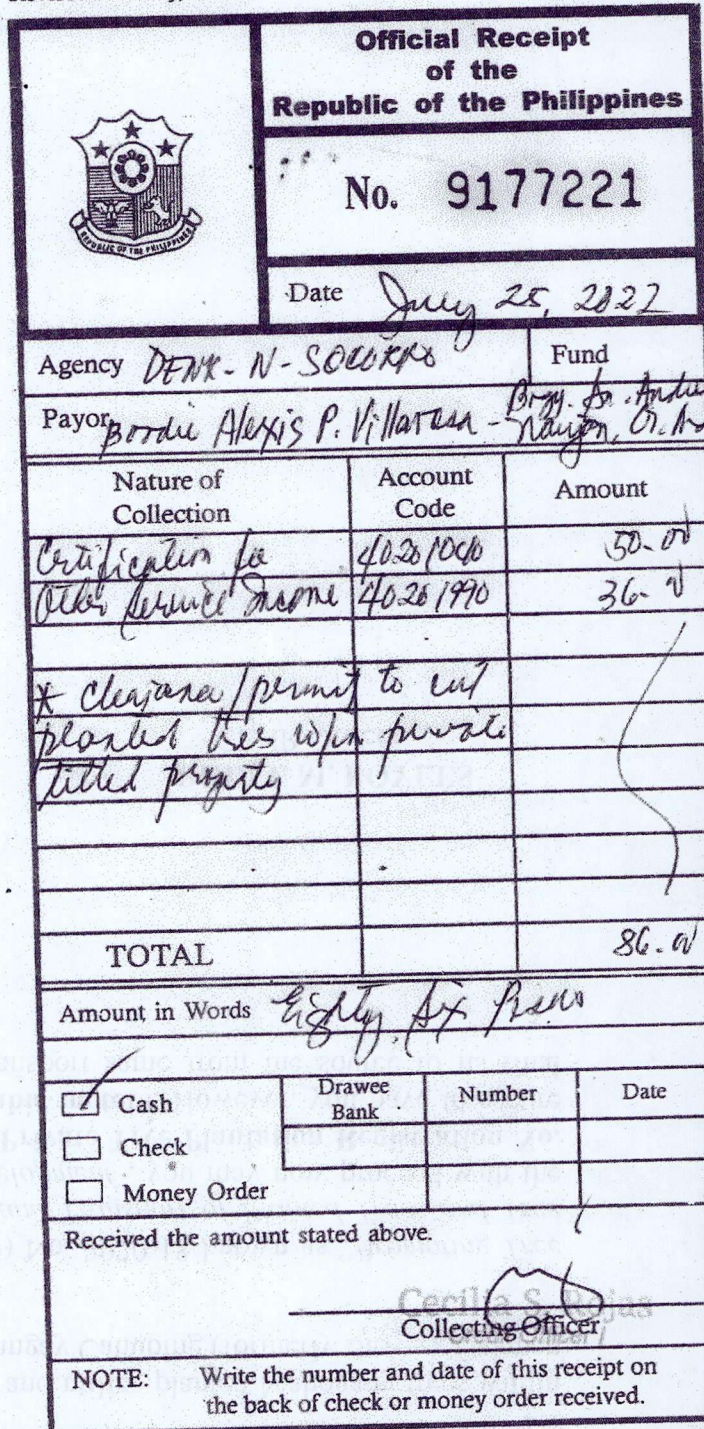 Official Receipt
of the
Republic of the Philippines
REPUBLIC OF THE PHILIPPINES
No. 9177221
Date July 25, 2022
Agency DENR - N - SOCORRO Fund
Payor Alexis P. Villarosa - Brgy.
Naujan, Or.
Nature of Collection Account Code Amount
Certification fee 40201040 50-00
Other Service Income 40201990 36-00
* Clearance/permit to cut
planted trees w/in private
titled property
TOTAL 86-00
Amount in Words Eighty Six Pesos
Cash Drawee Bank Number Date
Check
Money Order
Received the amount stated above.
Cecilia S. Rojas
Collecting Officer
NOTE: Write the number and date of this receipt on
the back of check or money order received.